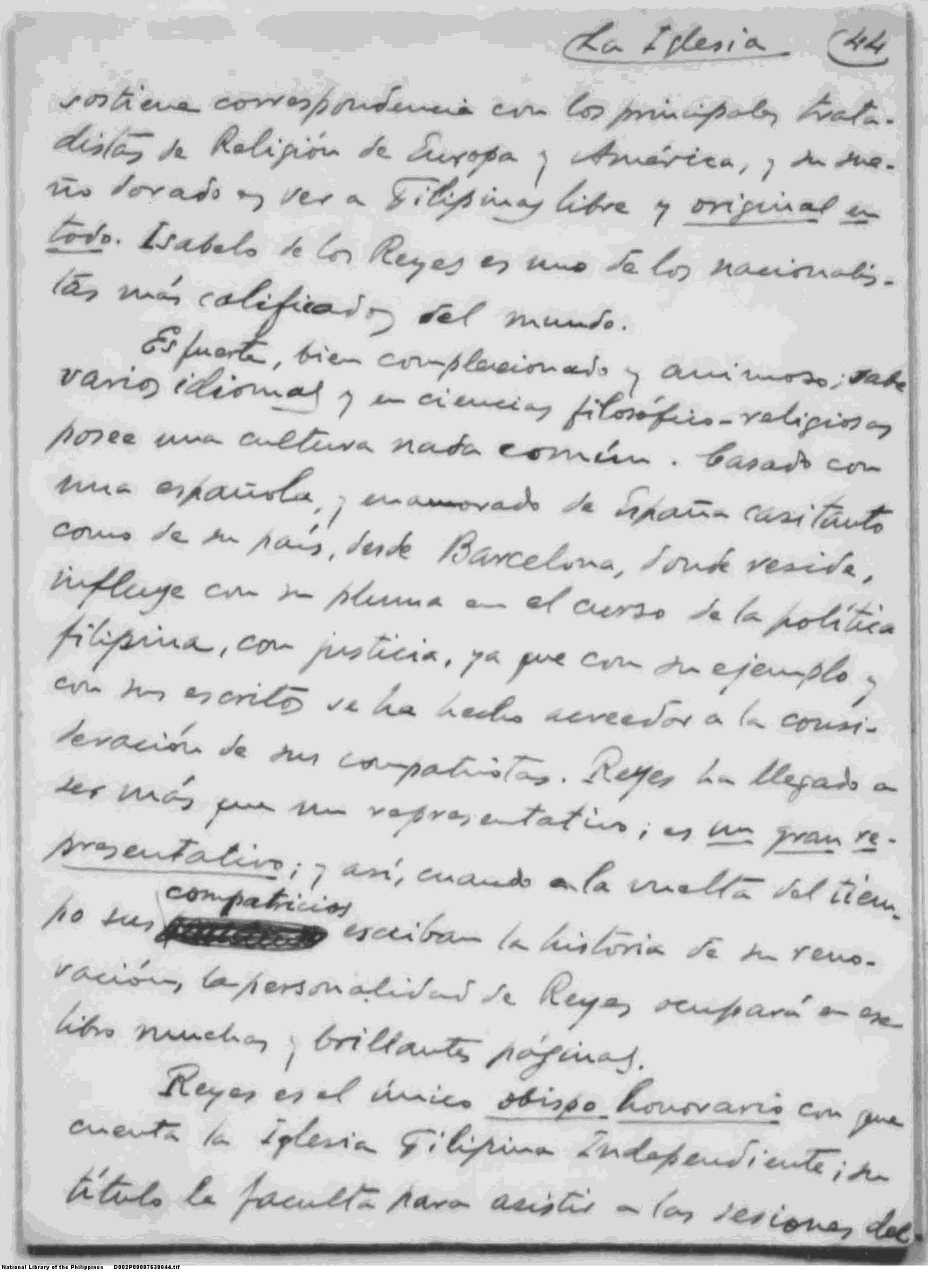 La Iglesia 44
sostiene correspondencia con los principales trata-
distas de Religión de Europa y América, y su sue-
ño dorado es ver a Filipinas libre y original en
todo. Isabelo de los Reyes es uno de los nacionalis-
tas más calificados del mundo.
Es fuerte, bien complexionado y animoso; sabe
varios idiomas y en ciencias filosófico-religiosas
posee una cultura nada común. Casado con
una española, y enamorado de España casi tanto
como de su país, desde Barcelona, donde reside,
influye con su pluma en el curso de la política
filipina, con justicia, ya que con su ejemplo y
con sus escritos se ha hecho acreedor a la consi-
deración de sus compatriotas. Reyes ha llegado a
ser más que un representativo; es un gran re-
presentativo; y así, cuando a la vuelta del tiem-
compatricios
po sus escriban la historia de su reno-
vación, la personalidad de Reyes ocupará en ese
libro muchas y brillantes páginas.
Reyes es el único obispo honorario con que
cuenta la Iglesia Filipina Independiente; su
título le faculta para asistir a las sesiones del
National Library of the Philippines